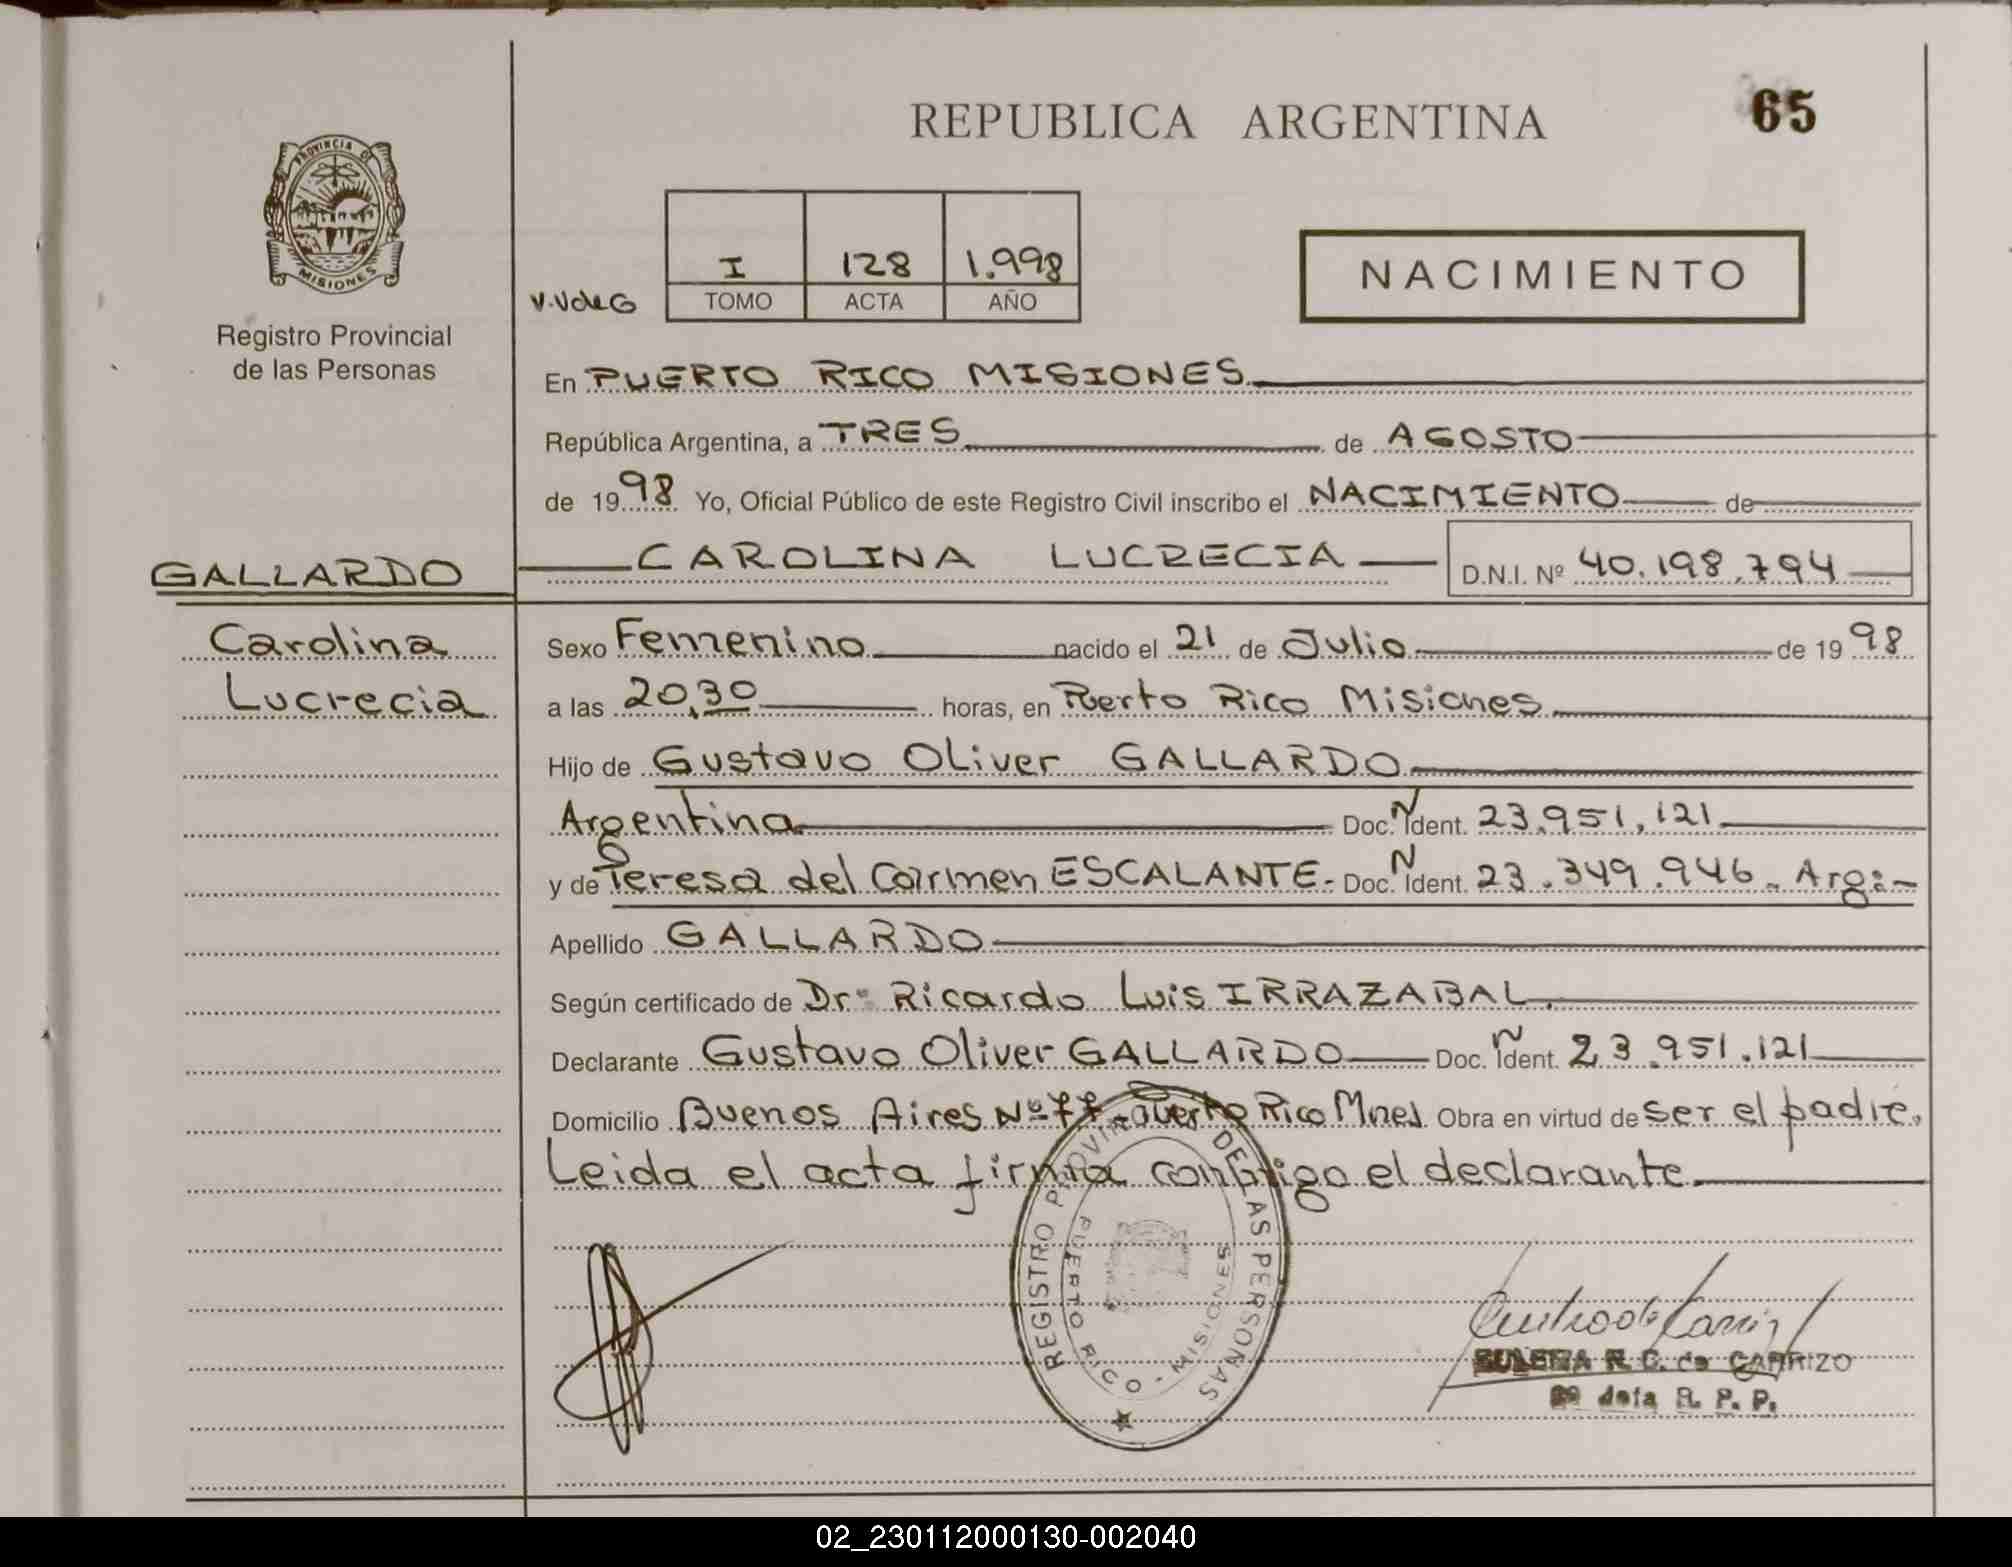 REPUBLICA ARGENTINA
65
PROVINCIA DE
MISIONES
Registro Provincial
de las Personas
V.VdeG
I 128 1.998
TOMO ACTA AÑO
NACIMIENTO
En PUERTO RICO MISIONES
República Argentina, a TRES de AGOSTO
de 1998 Yo, Oficial Público de este Registro Civil inscribo el NACIMIENTO de
GALLARDO
CAROLINA LUCRECIA D.N.I. Nº 40.198.794
Carolina
Lucrecia
Sexo Femenino nacido el 21 de Julio de 1998
a las 20,30 horas, en Puerto Rico Misiones
Hijo de Gustavo Oliver GALLARDO
Argentina Doc. Ñ Ident. 23.951.121
y de Teresa del Carmen ESCALANTE.- Doc. N Ident. 23.349.946. Arg:-
Apellido GALLARDO
Según certificado de Dr. Ricardo Luis IRRAZABAL.
Declarante Gustavo Oliver GALLARDO Doc. Ñ Ident. 23.951.121
Domicilio Buenos Aires Nº 77 - Puerto Rico Mnes. Obra en virtud de ser el padre.
Leida el acta firma conmigo el declarante.
REGISTRO PROVINCIAL DE LAS PERSONAS
PUERTO RICO - MISIONES
R. C. de CARRIZO
R. P. P.
02_230112000130-002040